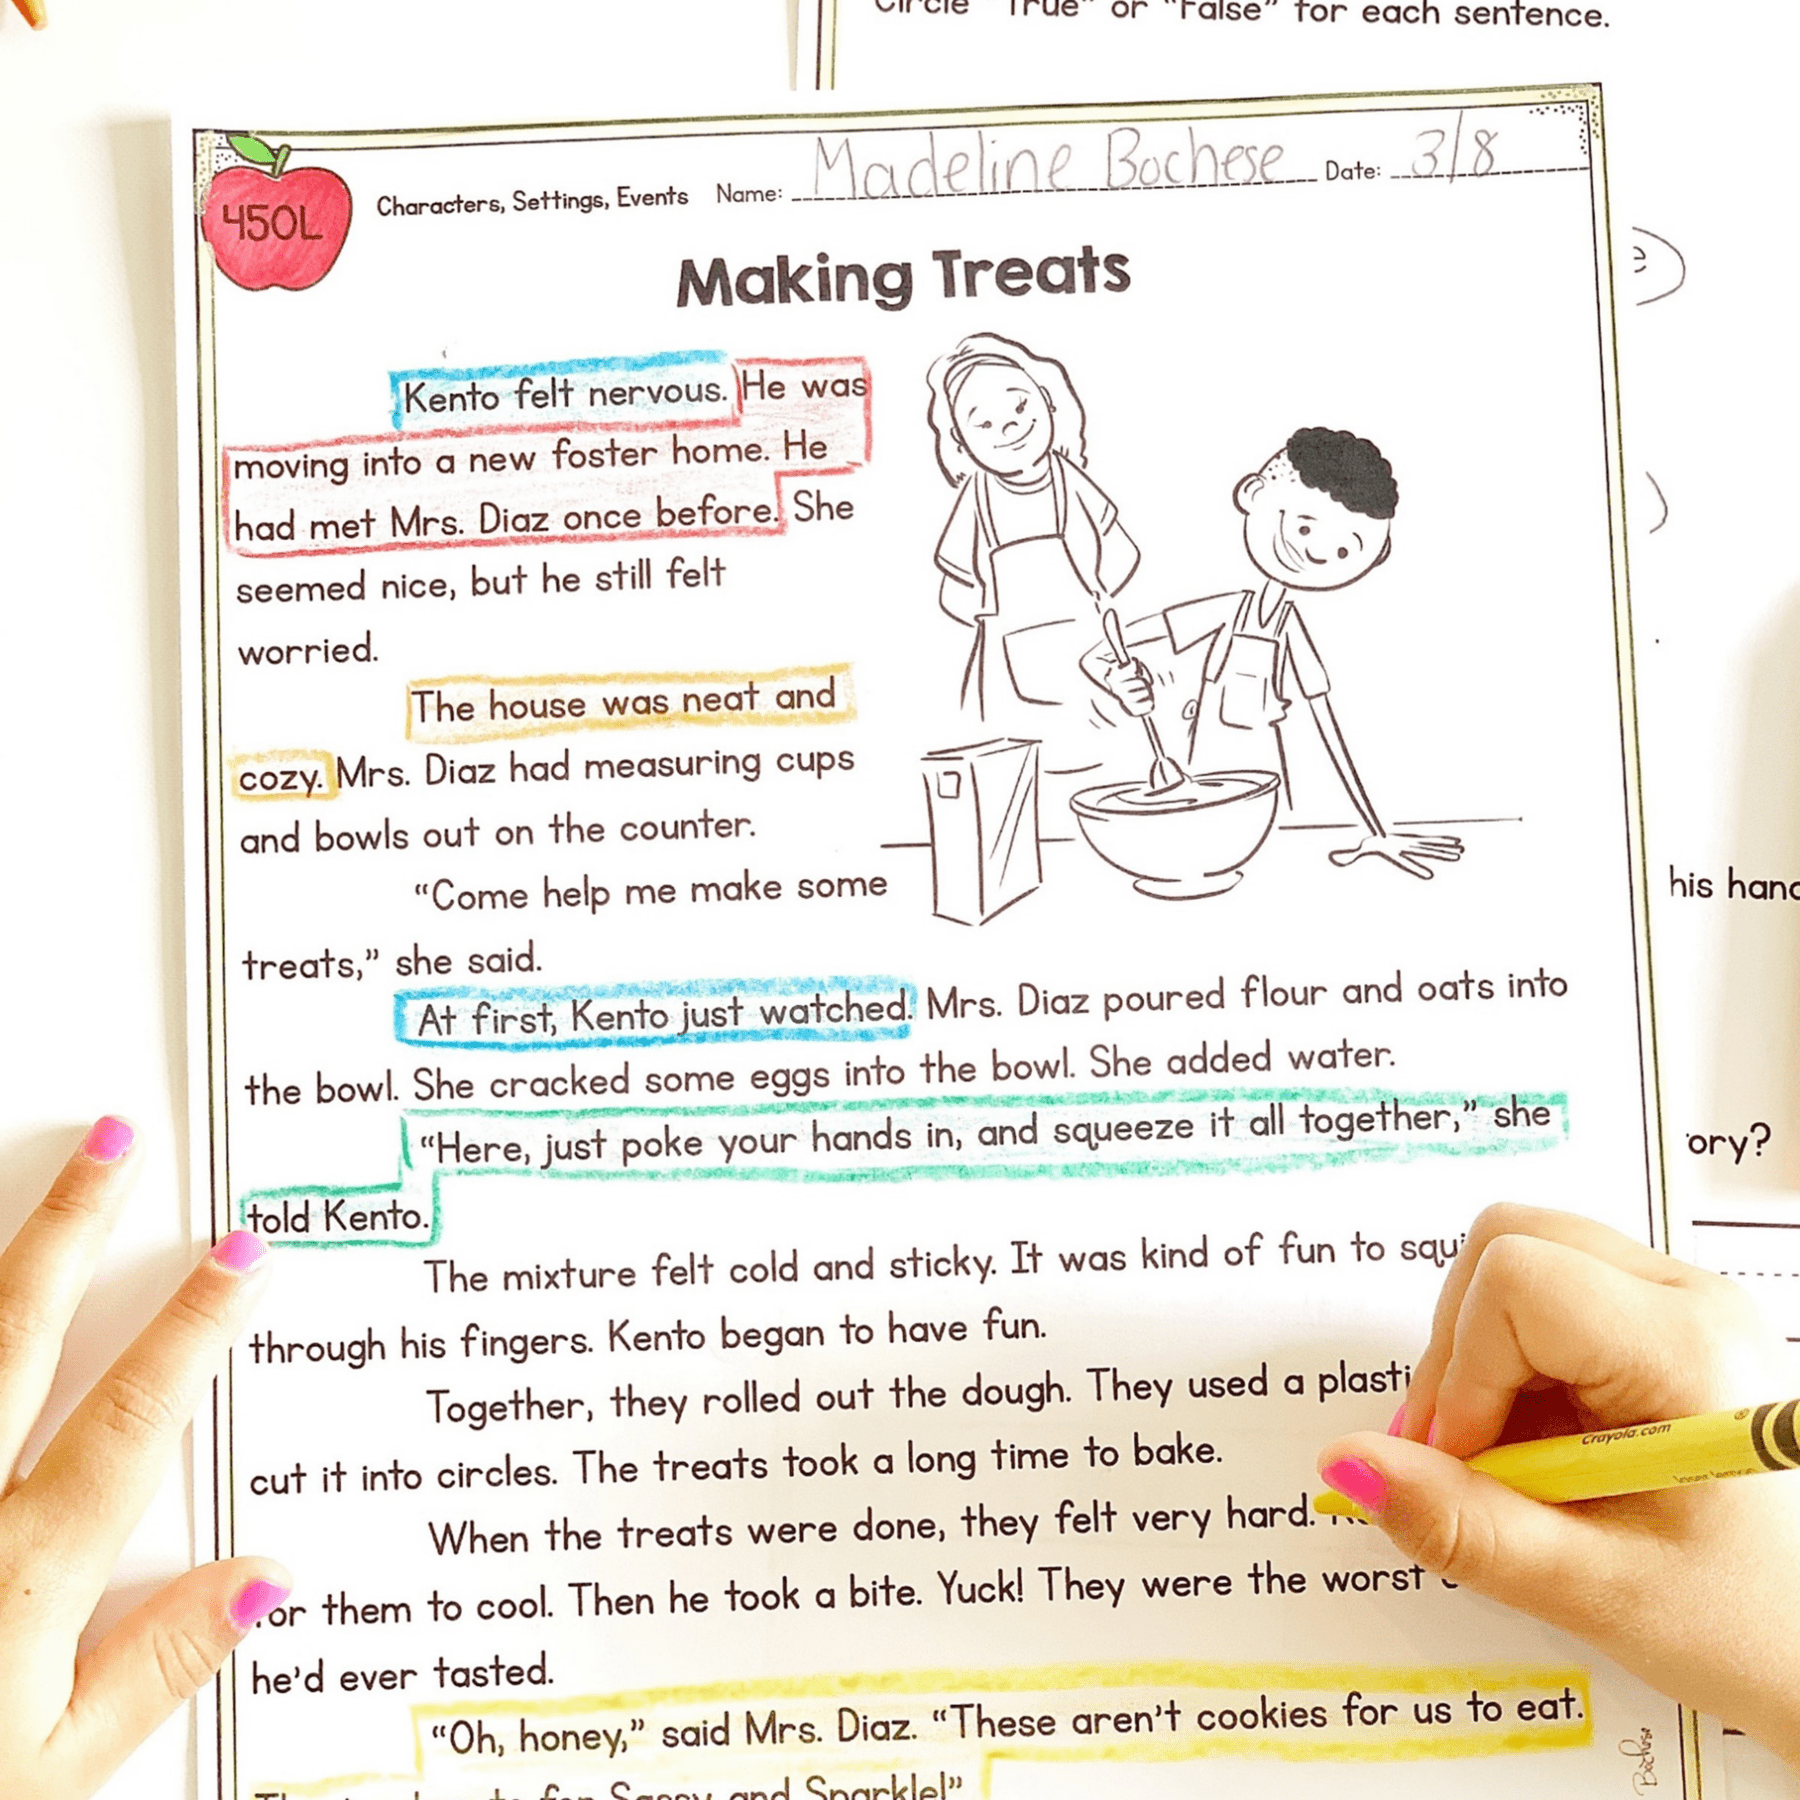 Circle "True" or "False" for each sentence.
450L
Characters, Settings, Events Name: Madeline Bochese Date: 3/8
Making Treats
Kento felt nervous. He was
moving into a new foster home. He
had met Mrs. Diaz once before. She
seemed nice, but he still felt
worried.
The house was neat and
cozy. Mrs. Diaz had measuring cups
and bowls out on the counter.
"Come help me make some
treats," she said.
At first, Kento just watched. Mrs. Diaz poured flour and oats into
the bowl. She cracked some eggs into the bowl. She added water.
"Here, just poke your hands in, and squeeze it all together," she
told Kento.
The mixture felt cold and sticky. It was kind of fun to
through his fingers. Kento began to have fun.
Together, they rolled out the dough. They used a
cut it into circles. The treats took a long time to bake.
When the treats were done, they felt very hard.
them to cool. Then he took a bite. Yuck! They were the worst
he'd ever tasted.
"Oh, honey," said Mrs. Diaz. "These aren't cookies for us to eat.
and Sparkle!"
his
ory?
Crayola.com
Bochese